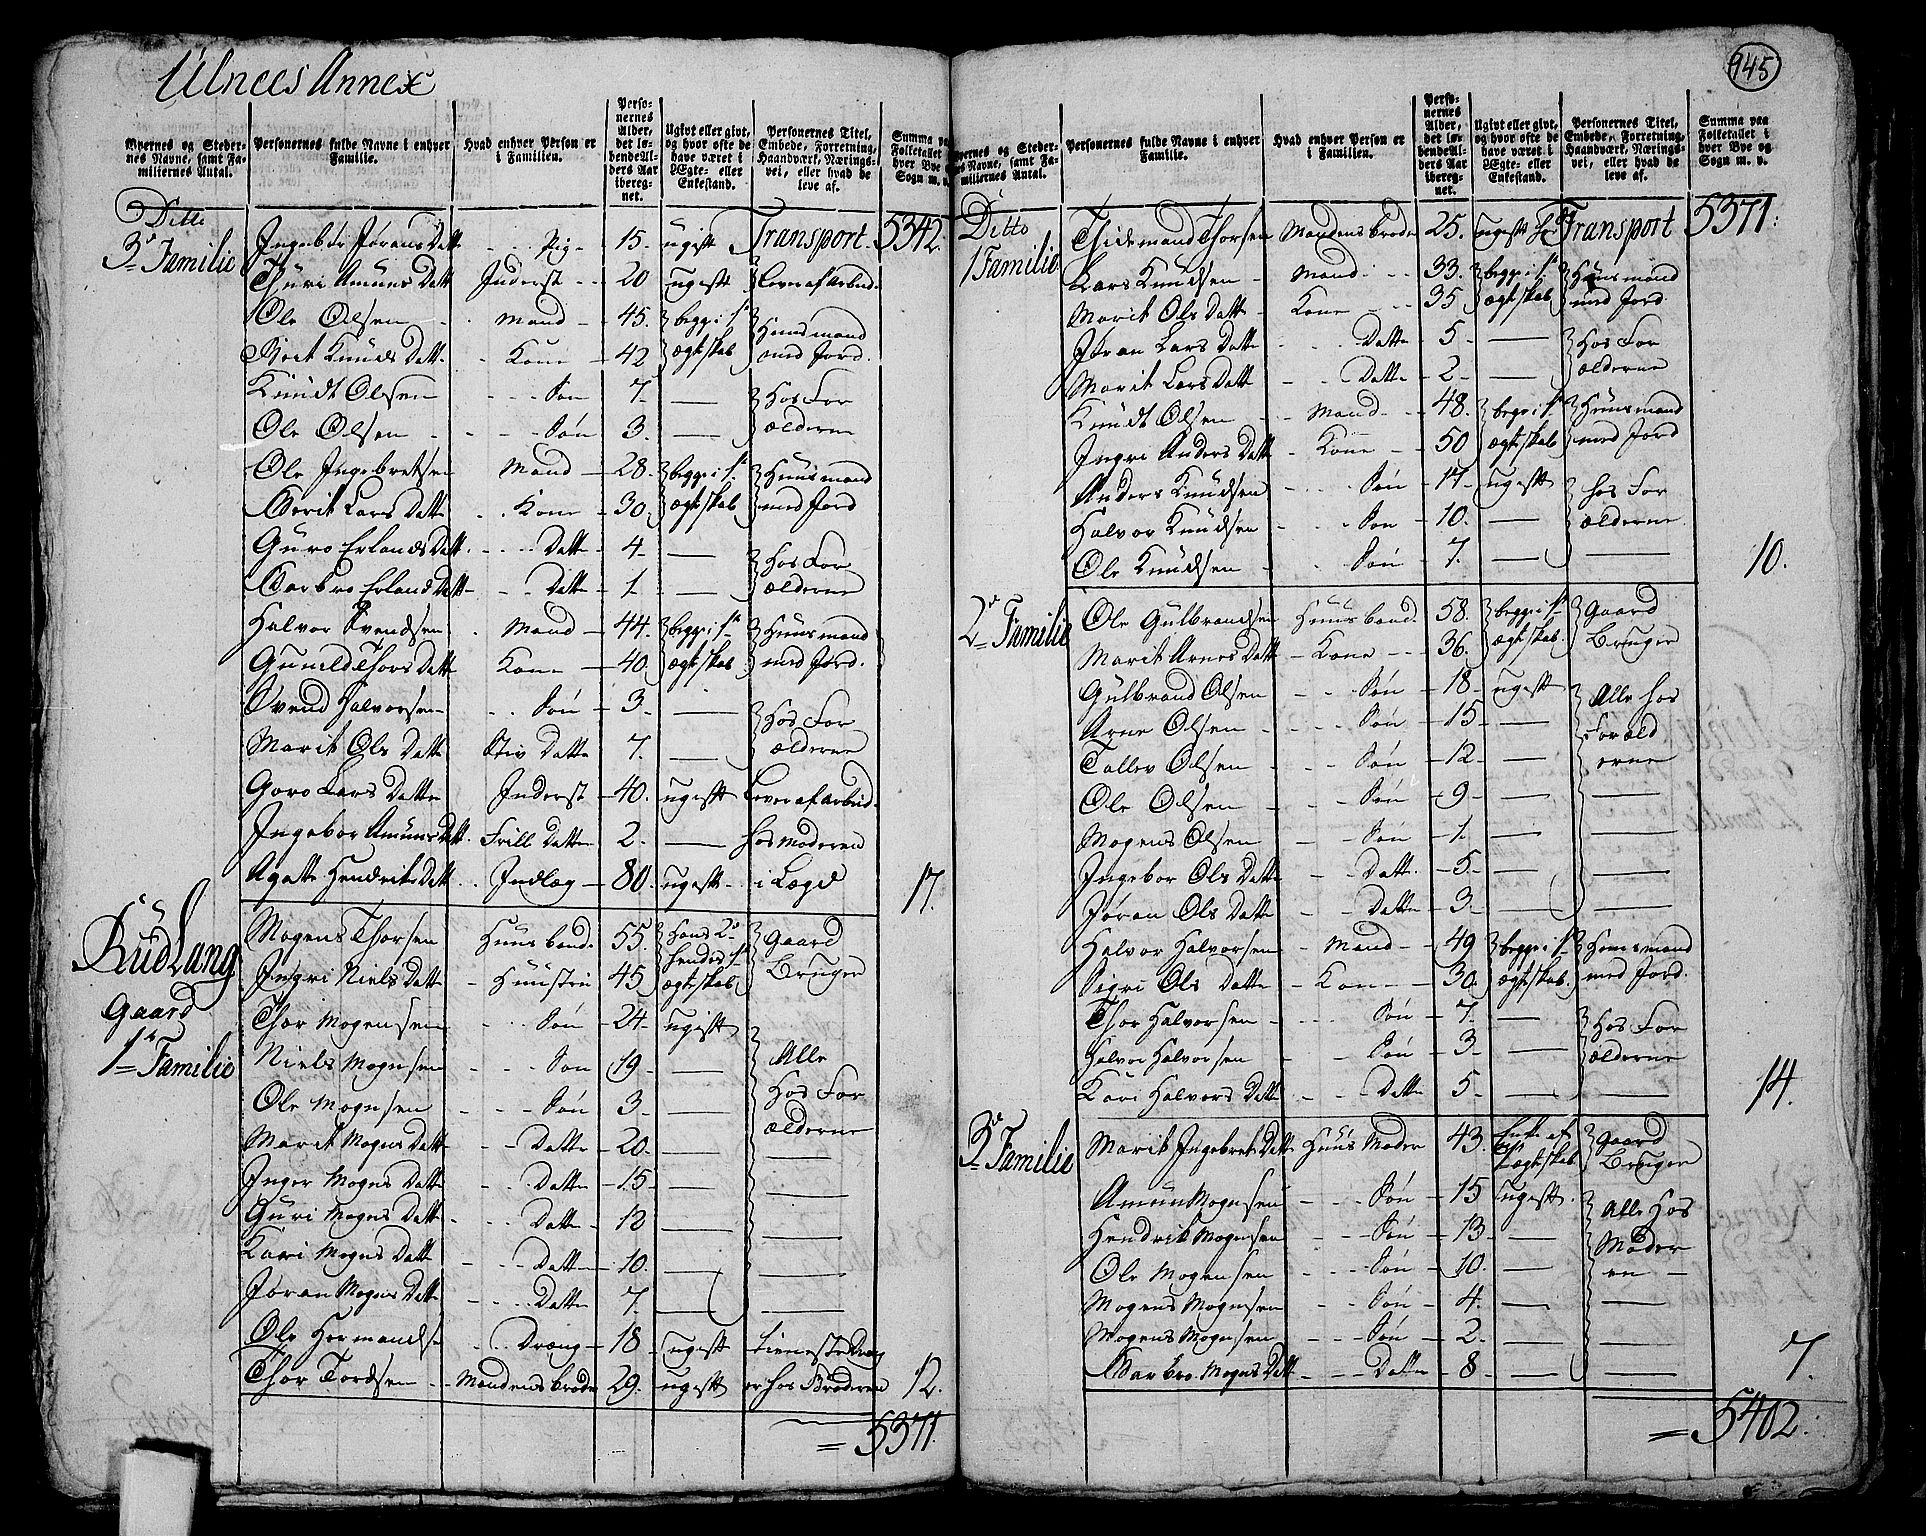 Ulnees Annex
Byernes og Stedernes Navne, samt Familiernes Antal. | Personernes fulde Navne i enhver Familie. | Hvad enhver Person er i Familien. | Personernes Alder, det løbende Alders Aar iberegnet. | Ugivt eller givt, og hvor ofte de have været i Ægte- eller Enkestand. | Personernes Titel, Embede, Forretning, Haandværk, Næringsvei, eller hvad de leve af. | Summa paa Folketallet i hver Bye og Sogn m. v.
Ditto 3de Familie | Ingebor Jørans Datt | Pig | 15. | ugift | Transport | 5342.
Thuri Amuns Datt | Inderst | 20 | ugift | lever af arbeid
Ole Olsen | Mand | 45. | begge i 1te | Huusmand
Goet Knuds Datt | Kone | 42 | ægteskab | med Jord.
Knudt Olsen | Søn | 7. | — | Hos For
Ole Olsen | Søn | 3. | — | ælderne
Ole Ingebretsen | Mand | 28. | begge i 1te | Huusmand
Berit Lars Datt | Kone | 30. | ægteskab | med Jord
Guro Erlands Datt | Datter | 4. | — | Hos For
Barbro Erland Datt | Datter | 1. | — | ælderne
Halvor Svendsen | Mand | 44. | begge i 1te | Huusmand
Gunild Thors Datt | Kone | 40. | ægteskab | med Jord.
Svend Halvorsen | Søn | 3. | — | Hos For
Marit Ols Datter | Stiv Datter | 7. | — | ælderne
Goro Lars Datter | Inderst | 40. | ugift | Lever af arbeid
Ingebor Amuns Datt | Frill Datter | 2. | — | hos Moderen
Agatte Hendriks Datt | Indlæg | 80. | ugift | i Lægd | 17.
Rudlang Gaard 1te Familie | Mogens Thorsen | Huusbond | 55. | Hans 2de Hendes 1te | Gaard
Ingri Niels Datter | Huustru | 45 | ægteskab | Bruger
Thor Mogensen | Søn | 24. | ugift
Niels Mogensen | Søn | 19. | — | Alle
Ole Mogensen | Søn | 3. | — | Hos For
Marit Mogens Datter | Datter | 20. | — | ælderne
Inger Mogens Datt | Datter | 15. | — | —
Guri Mogens Datt | Datter | 12 | — | —
Kari Mogens Datt | Datter | 10. | — | —
Jøran Mogens Datt | Datter | 7. | — | —
Ole Hermandsen | Dreng | 18 | ugift | tieneste Dreng
Thor Tordsen | Mandens broder | 29. | ugift | er hos Broderen | 12.
= 5371.
945
Byernes og Stedernes Navne, samt Familiernes Antal. | Personernes fulde Navne i enhver Familie. | Hvad enhver Person er i Familien. | Personernes Alder, det løbende Alders Aar iberegnet. | Ugivt eller givt, og hvor ofte de have været i Ægte- eller Enkestand. | Personernes Titel, Embede, Forretning, Haandværk, Næringsvei, eller hvad de leve af. | Summa paa Folketallet i hver Bye og Sogn m. v.
Ditto 1 Familie | Thidemand Thorsen | Mandens broder | 25. | ugift | Transport | 5371.
Lars Knudsen | Mand | 33. | begge i 1te | Huusmand
Marit Ols Datter | Kone | 35 | ægteskab | med Jord.
Jøran Lars Datte | Datte | 5 | — | Hos For
Marit Lars Datt | Datte | 2. | — | ælderne
Knudt Olsen | Mand | 48. | begge i 1te | Huusmand
Ingri Anders Datt | Kone | 50 | ægteskab | med Jord
Anders Knudsen | Søn | 17. | ugift | hos For
Halvor Knudsen | Søn | 10. | — | ælderne.
Ole Knudsen | Søn | 7. | — | — | 10.
2de Familie | Ole Gulbrandsen | Huusbond | 58. | begge i 1te | Gaard
Marit Arnes Datt | Kone | 36. | ægteskab. | Bruger
Gulbrand Olsen | Søn | 18. | ugift | Alle hos
Arne Olsen | Søn | 15. | — | Foræld
Tollev Olsen | Søn | 12. | — | erne
Ole Olsen | Søn | 9. | — | —
Mogens Olsen | Søn | 1. | — | —
Ingebor Ols Datte | Datte | 5. | — | —
Jøran Ols Datte | Datte | 3. | — | —
Halvor Halvorsen | Mand | 49 | begge i 1te | Huusmand
Sigri Ols Datte | Kone | 30. | ægteskab. | med Jord.
Thor Halvorsen | Søn | 7. | — | Hos For
Halvor Halvorsen | Søn | 3. | — | ælderne
Kari Halvors Datte | Datte | 5 | — | — | 14.
3de Familie | Marit Ingebrets Datt | Huus Moder | 43. | Enke af ægteskab | Gaard Bruger
Amun Mogensen | Søn | 15 | ugift. | Alle Hos
Hendrik Mogensen | Søn | 13 | — | Moder
Ole Mogensen | Søn | 10. | — | en
Mogens Mogensen | Søn | 4. | — | —
Mogens Mogensen | Søn | 2. | — | —
Barbro Mogens Datt | Datte | 8 | — | — | 7.
= 5402.